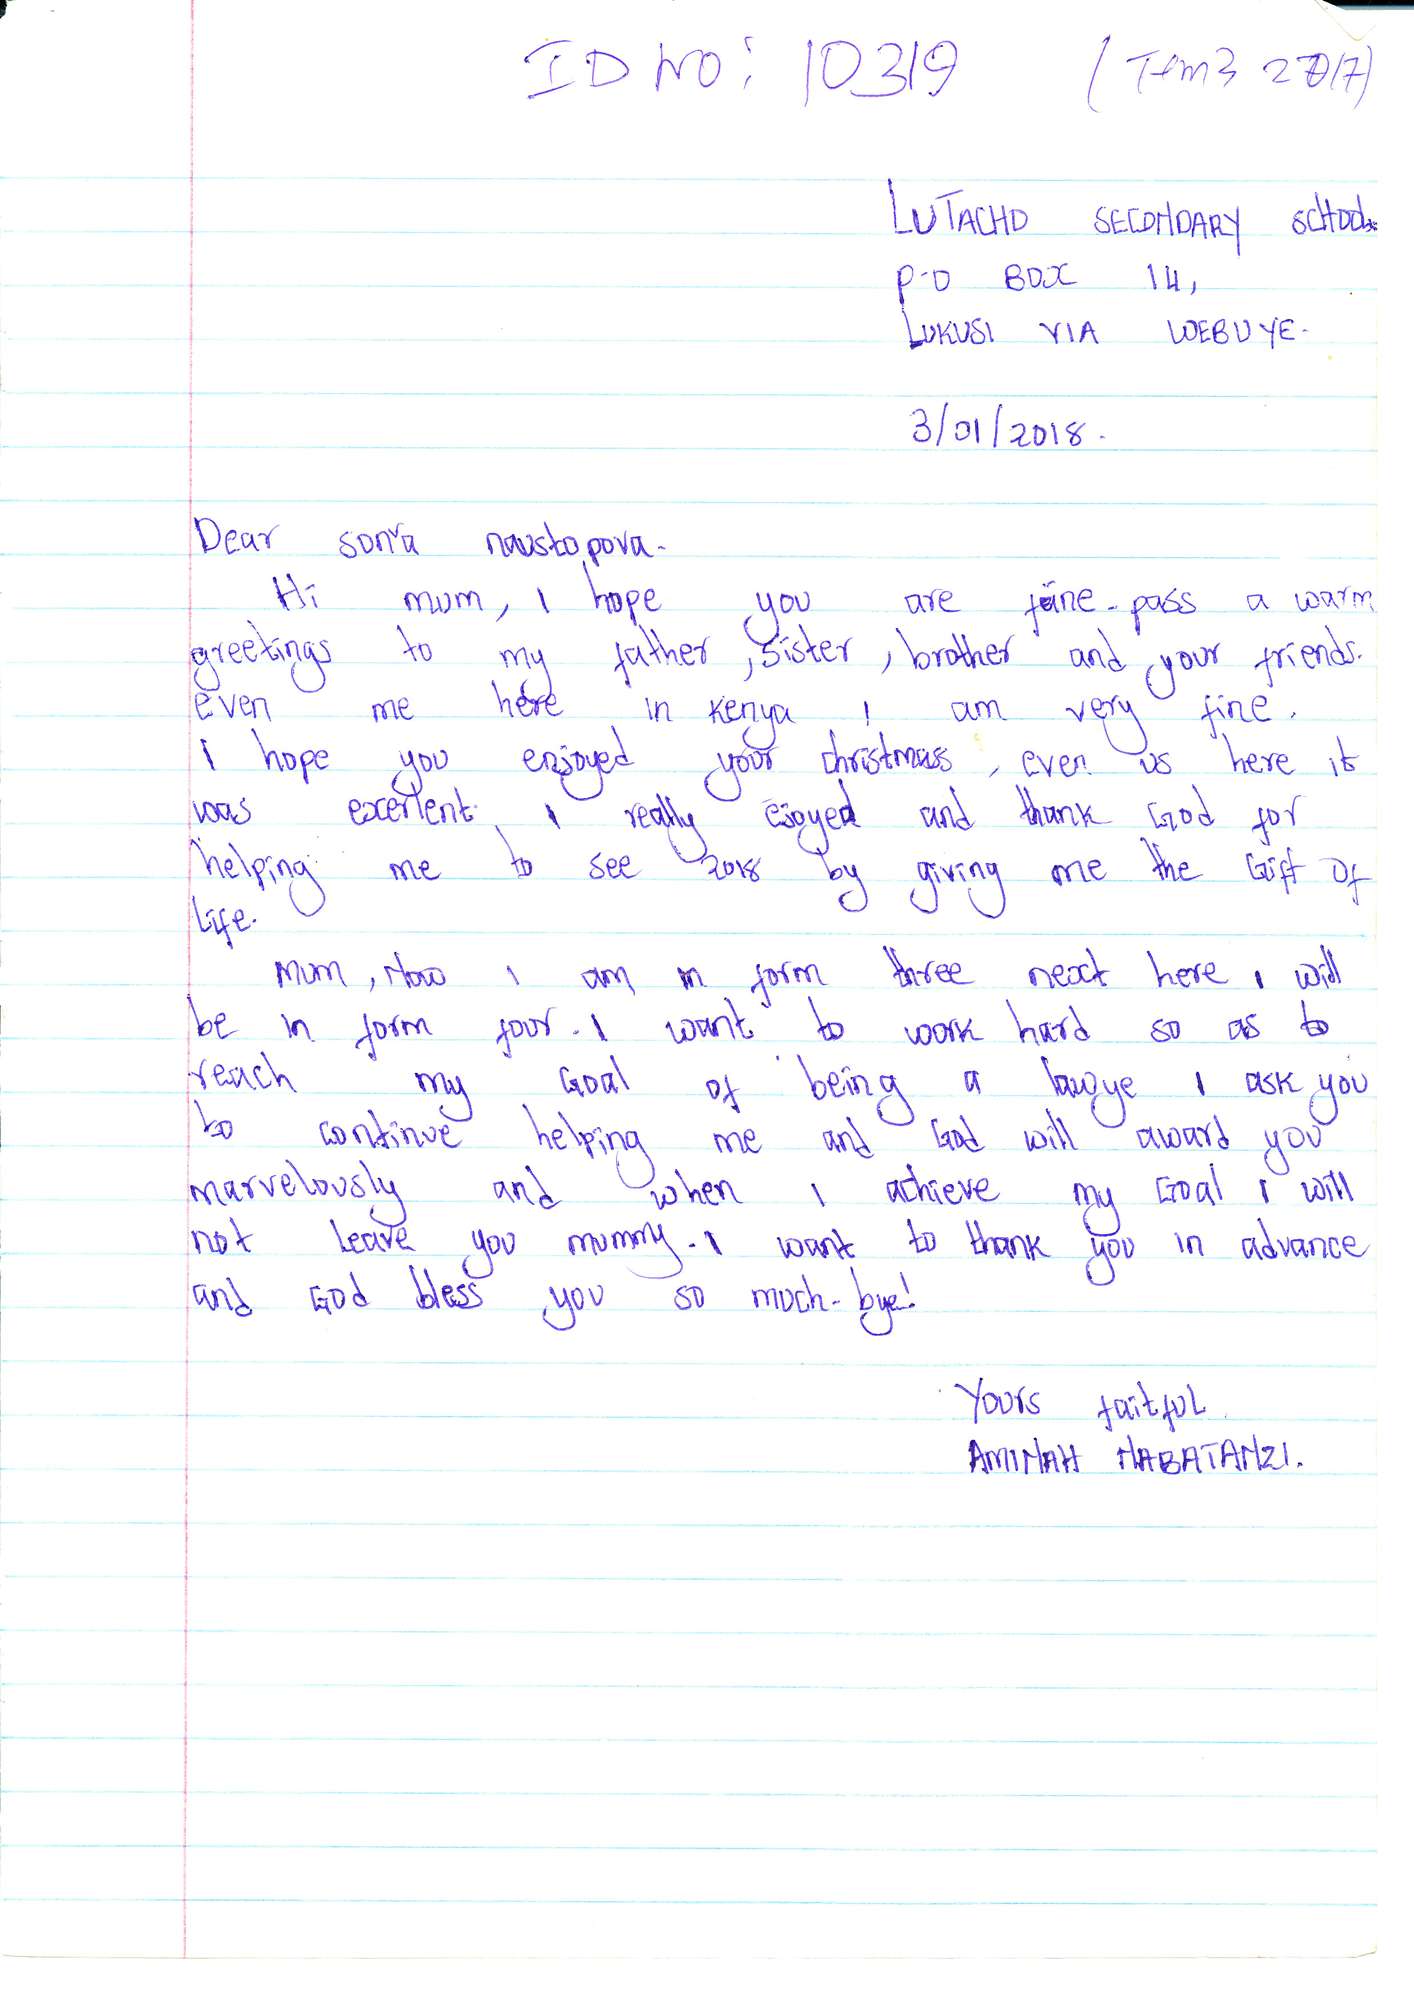 ID No: 10319 (Term3 2017)
LUTACHO SECONDARY SCHOOL
P.O BOX 14,
LUKUSI VIA WEBUYE.
3/01/2018.
Dear sonia naustopova.
Hi mum, I hope you are fine. pass a warm
greetings to my father, sister, brother and your friends.
even me here in Kenya I am very fine.
I hope you enjoyed your christmass, even us here it
was excerlent. I really ejoyed and thank God for
helping me to see 2018 by giving me the Gift of
Life.
mum, Now I am in form three next here I will
be in form four. I want to work hard so as to
reach my Goal of being a lawye I ask you
to continue helping me and God will award you
marvelously and when I achieve my Goal I will
not leave you mummy. I want to thank you in advance
and God bless you so much. bye!
Yours faitful
AMINAH NABATANZI.